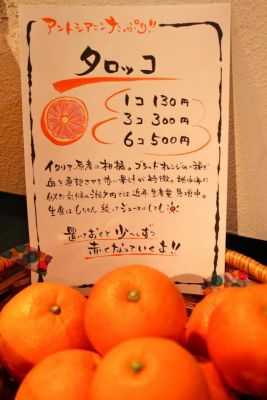 アントシアニンたっぷり!!
タロッコ
1コ 130円
3コ 300円
6コ 500円
イタリア原産の柑橘。ブラッドオレンジの一種で
血を連想させる赤い果汁が特徴。地中海に
似た気候の宇和島では近年生産量急増中。
生食はもちろん絞ってジュースにしても
置いておくと少〜しずつ
赤くなっていくよ!!